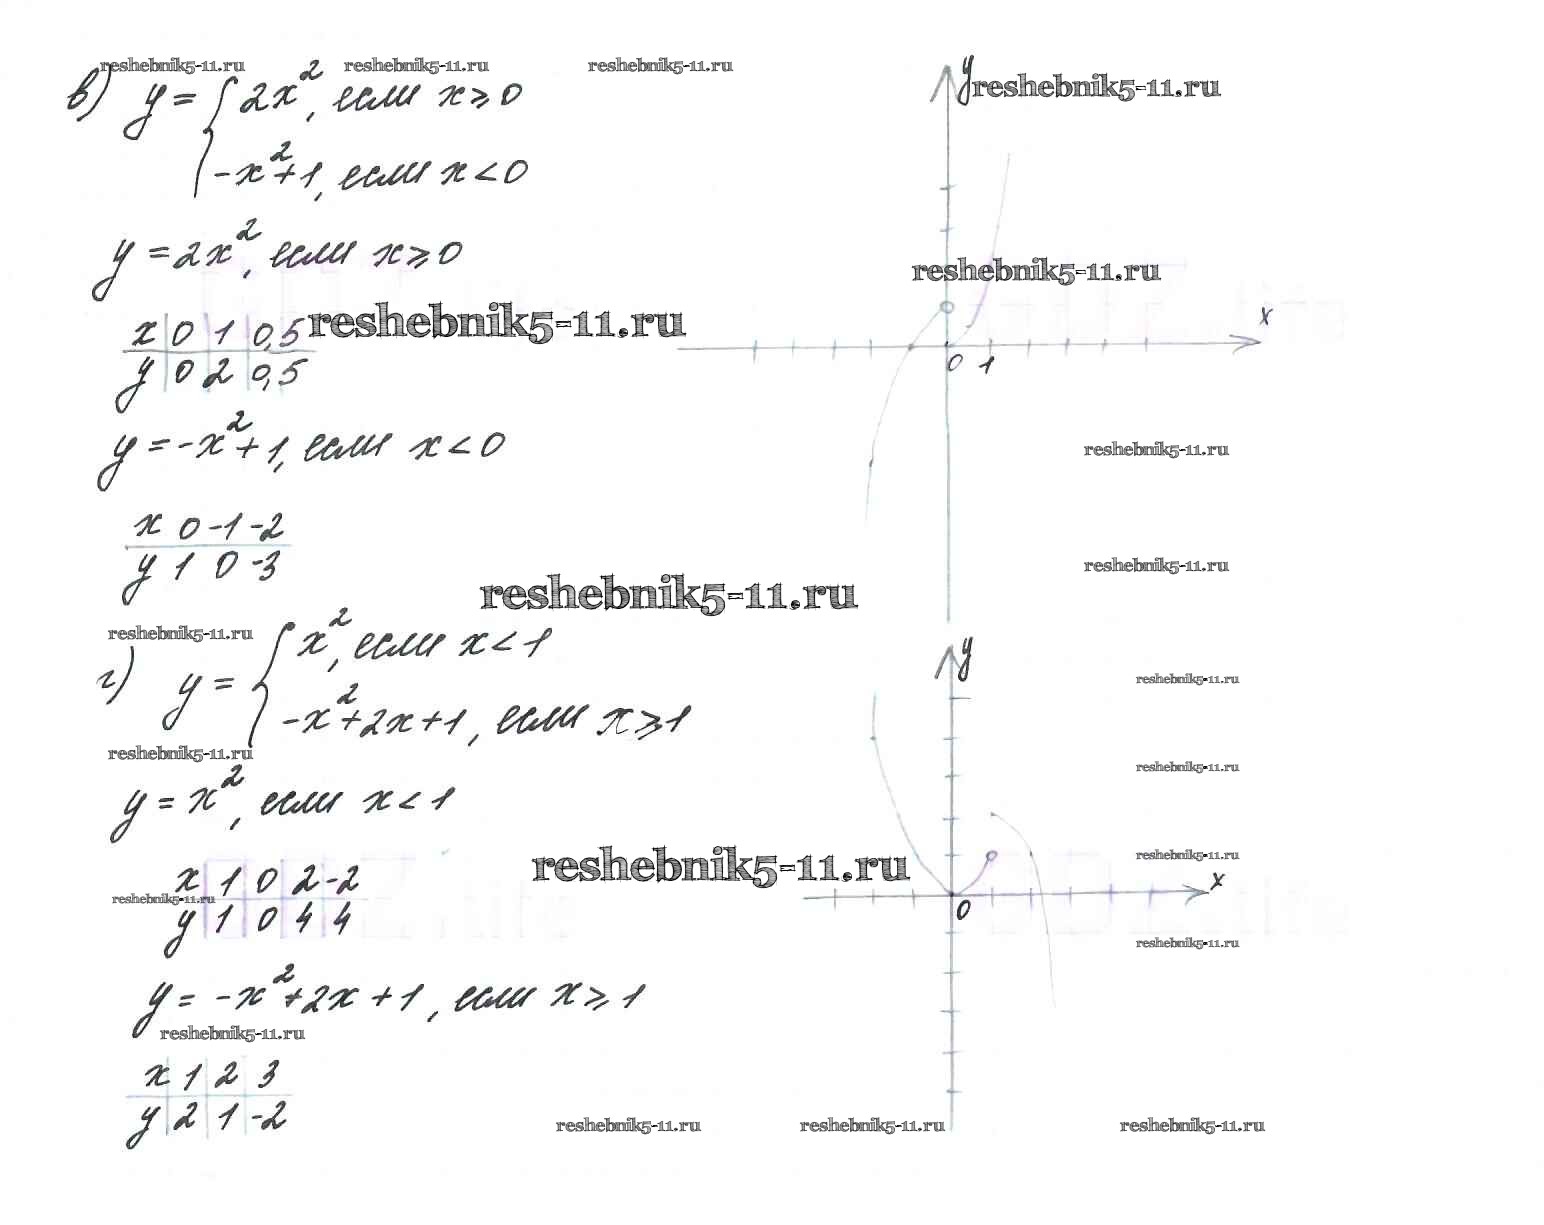 reshebnik5-11.ru reshebnik5-11.ru reshebnik5-11.ru
в) y = { 2x², если x ≥ 0
-x²+1, если x < 0
y = 2x², если x ≥ 0
x 0 1 0,5
y 0 2 0,5
reshebnik5-11.ru
y = -x²+1, если x < 0
x 0 -1 -2
y 1 0 -3
reshebnik5-11.ru
y
reshebnik5-11.ru
reshebnik5-11.ru
x
0 1
reshebnik5-11.ru
reshebnik5-11.ru
reshebnik5-11.ru
г) y = { x², если x < 1
-x²+2x+1, если x ≥ 1
reshebnik5-11.ru
y = x², если x < 1
x 1 0 2 -2
reshebnik5-11.ru
y 1 0 4 4
reshebnik5-11.ru
y = -x²+2x+1, если x ≥ 1
reshebnik5-11.ru
x 1 2 3
y 2 1 -2
y
reshebnik5-11.ru
reshebnik5-11.ru
reshebnik5-11.ru
x
0
reshebnik5-11.ru
reshebnik5-11.ru reshebnik5-11.ru reshebnik5-11.ru